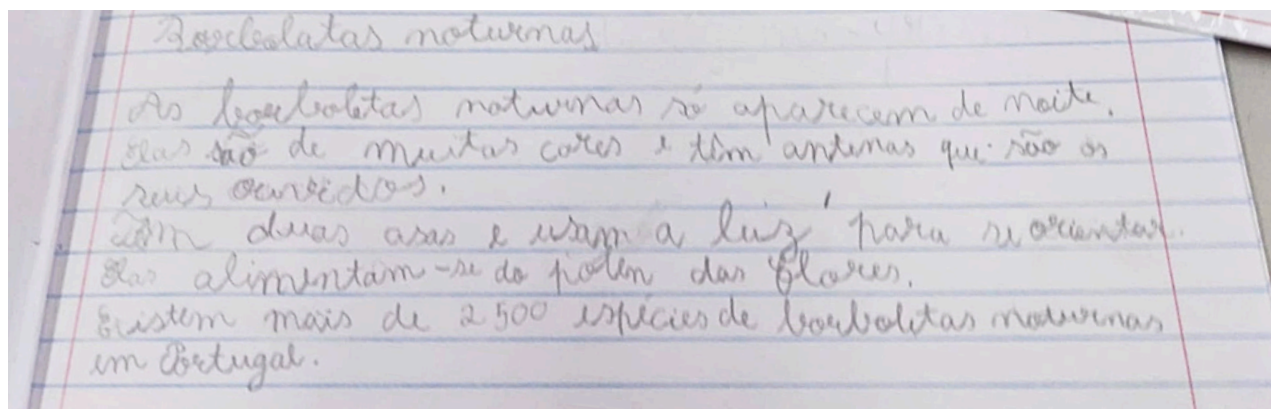 Borboletas noturnas
As borboletas noturnas só aparecem de noite.
Elas são de muitas cores e têm antenas que são os
seus ouvidos.
Têm duas asas e usam a luz para se orientar.
Elas alimentam-se do polén das flores.
Existem mais de 2500 espécies de borboletas noturnas
em Portugal.